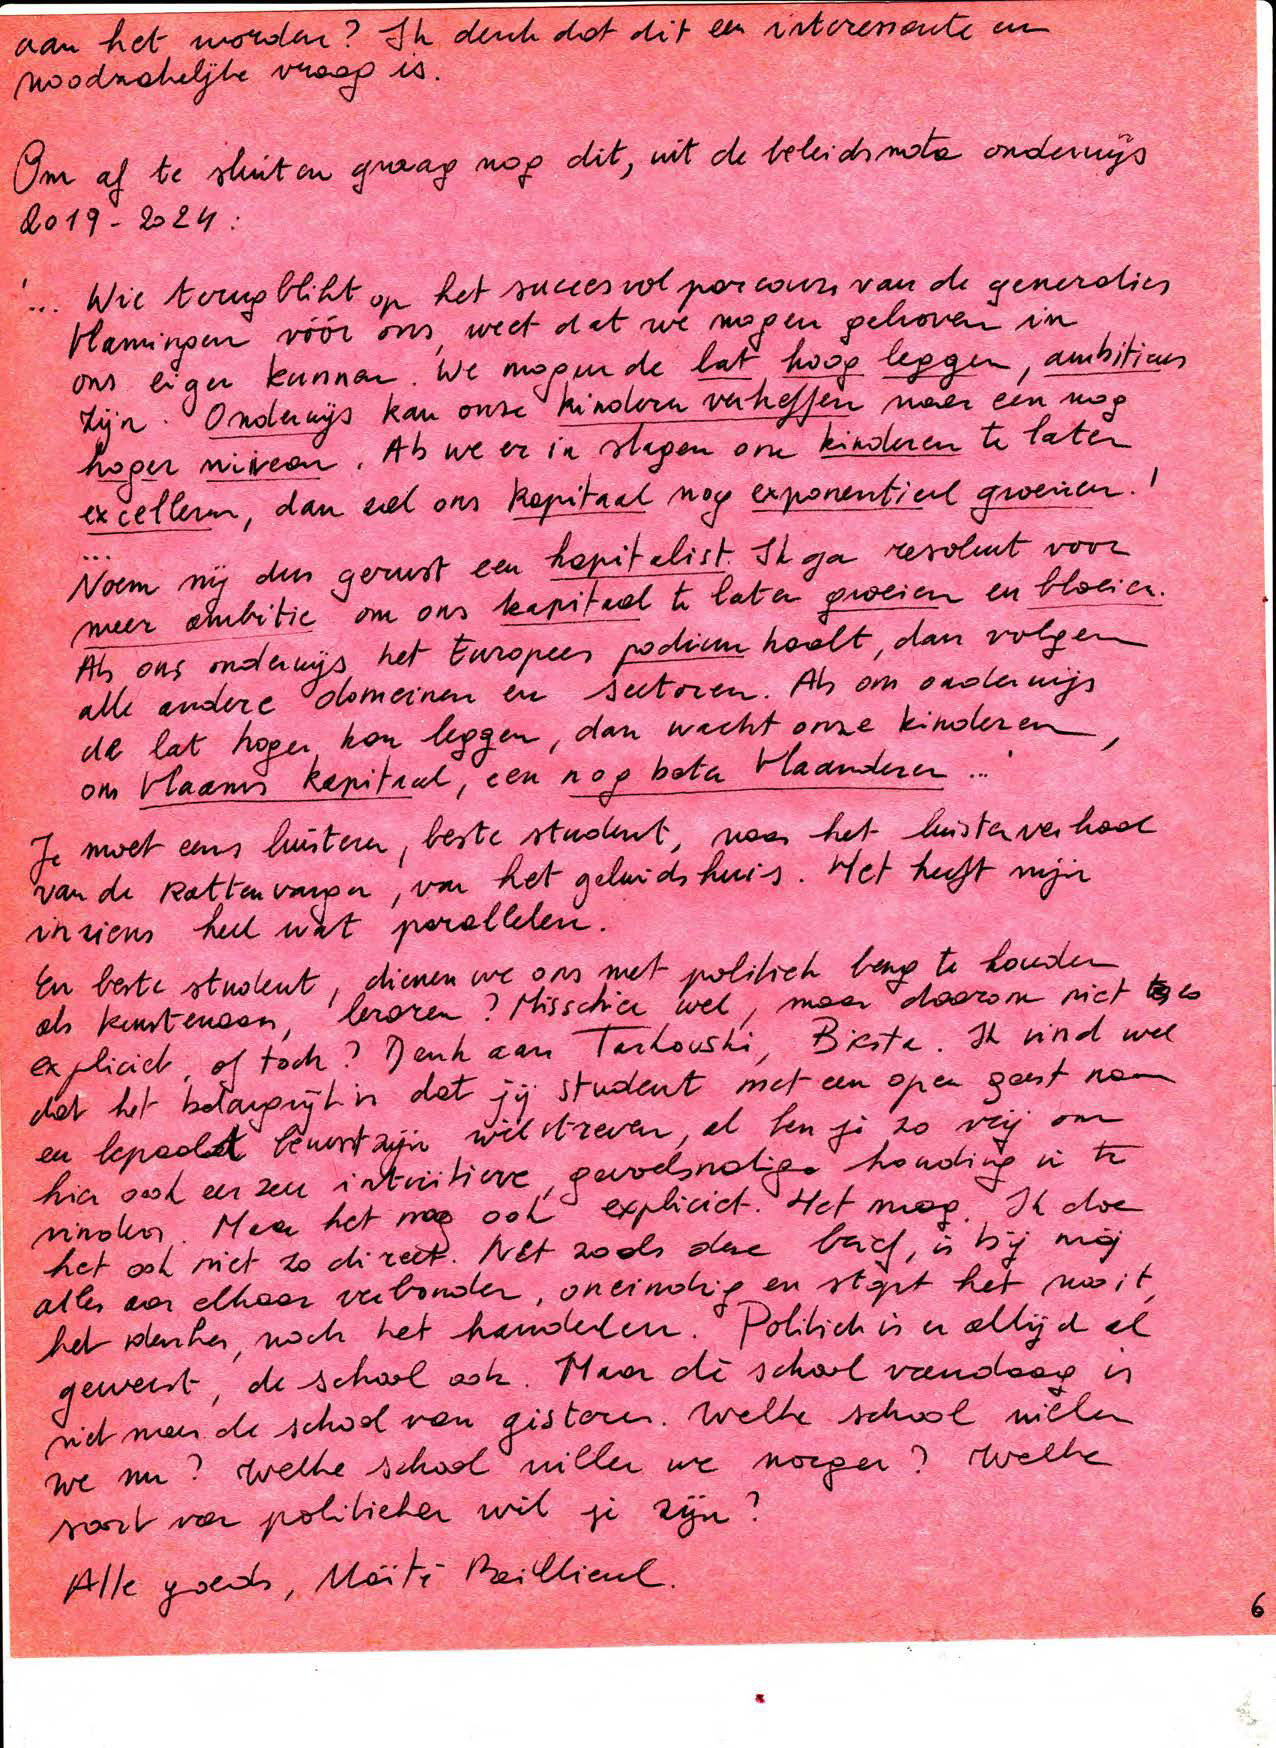 aan het worden? Ik denk dat dit een interessante en
noodzakelijke vraag is.
Om af te sluiten graag nog dit, uit de beleidsnota onderwijs
2019-2024:
'... Wie terugblikt op het succesvol parcours van de generaties
Vlamingen vóór ons, weet dat we mogen geloven in
ons eigen kunnen. We mogen de lat hoog leggen, ambitieus
zijn. Onderwijs kan onze kinderen verheffen naar een nog
hoger niveau. Als we er in slagen onze kinderen te laten
excelleren, dan zal ons kapitaal nog exponentieel groeien.'
...
Noem mij dus gerust een kapitalist. Ik ga resoluut voor
meer ambitie om ons kapitaal te laten groeien en bloeien.
Als ons onderwijs het Europees podium haalt, dan volgen
alle andere domeinen en sectoren. Als ons onderwijs
de lat hoger kan leggen, dan wacht onze kinderen,
ons Vlaams kapitaal, een nog beter Vlaanderen ...'
Je moet eens luisteren, beste student, naar het luisterverhaal
van de Rattenvanger, van het geluidshuis. Het heeft mijn
inziens heel wat parallellen.
En beste student, dienen we ons met politiek bezig te houden
als kunstenaars, leraren? Misschien wel, maar daarom niet zo
expliciet, of toch? Denk aan Tarkovski, Biesta. Ik vind wel
dat het belangrijk is dat jij student met een open geest naar
een bepaald bewustzijn wil streven, al ben je zo vrij om
hier ook eerder een intuïtieve, gevoelsmatige houding in te
vinden. Maar het mag ook expliciet. Het mag. Ik doe
het ook niet zo direct. Net zoals deze brief, is bij mij
alles aan elkaar verbonden, oneindig en stopt het nooit,
het denken, noch het handelen. Politiek is er altijd al
geweest, de school ook. Maar dé school vandaag is
niet meer de school van gisteren. Welke school willen
we nu? Welke school willen we morgen? Welke
soort van politieker wil je zijn?
Alle goeds, Maïté Baillieul.
6